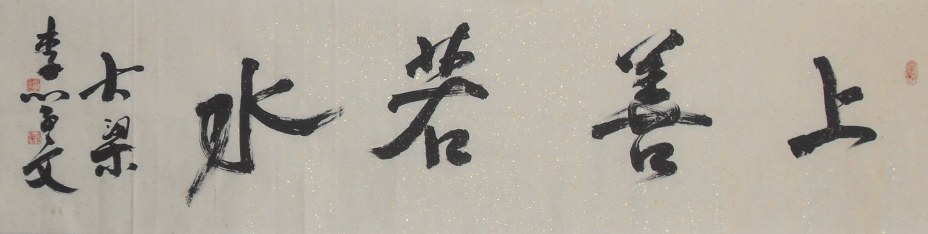 上善若水
大梁
李 文